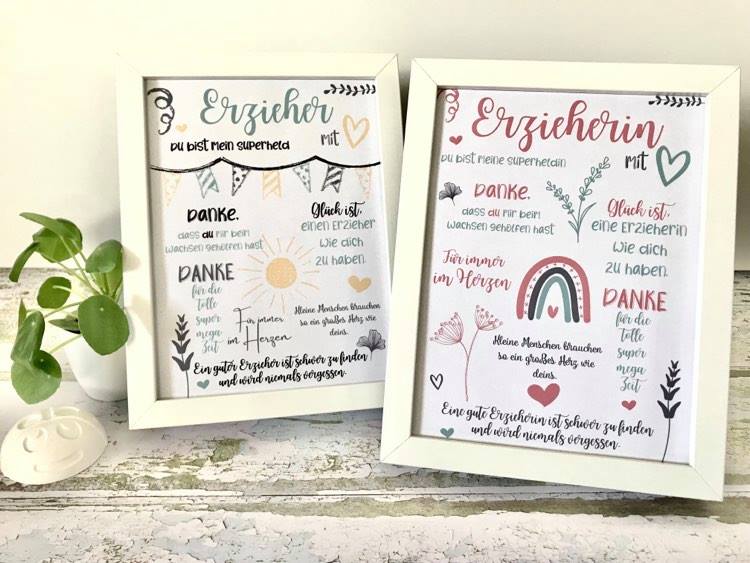 Erzieher
Du bist mein superheld
mit
Danke,
dass du mir beim
wachsen geholfen hast
Glück ist,
einen Erzieher
wie dich
zu haben.
DANKE
für die
Tolle
super
mega
Zeit
Für immer
im Herzen
Kleine Menschen brauchen
so ein großes Herz wie
deins.
Ein guter Erzieher ist schwer zu finden
und wird niemals vergessen.
Erzieherin
Du bist meine superheldin
mit
Danke,
dass du mir beim
wachsen geholfen hast
Glück ist,
eine Erzieherin
wie dich
zu haben.
Für immer
im Herzen
DANKE
für die
Tolle
super
mega
Zeit
Kleine Menschen brauchen
so ein großes Herz wie
deins.
Eine gute Erzieherin ist schwer zu finden
und wird niemals vergessen.